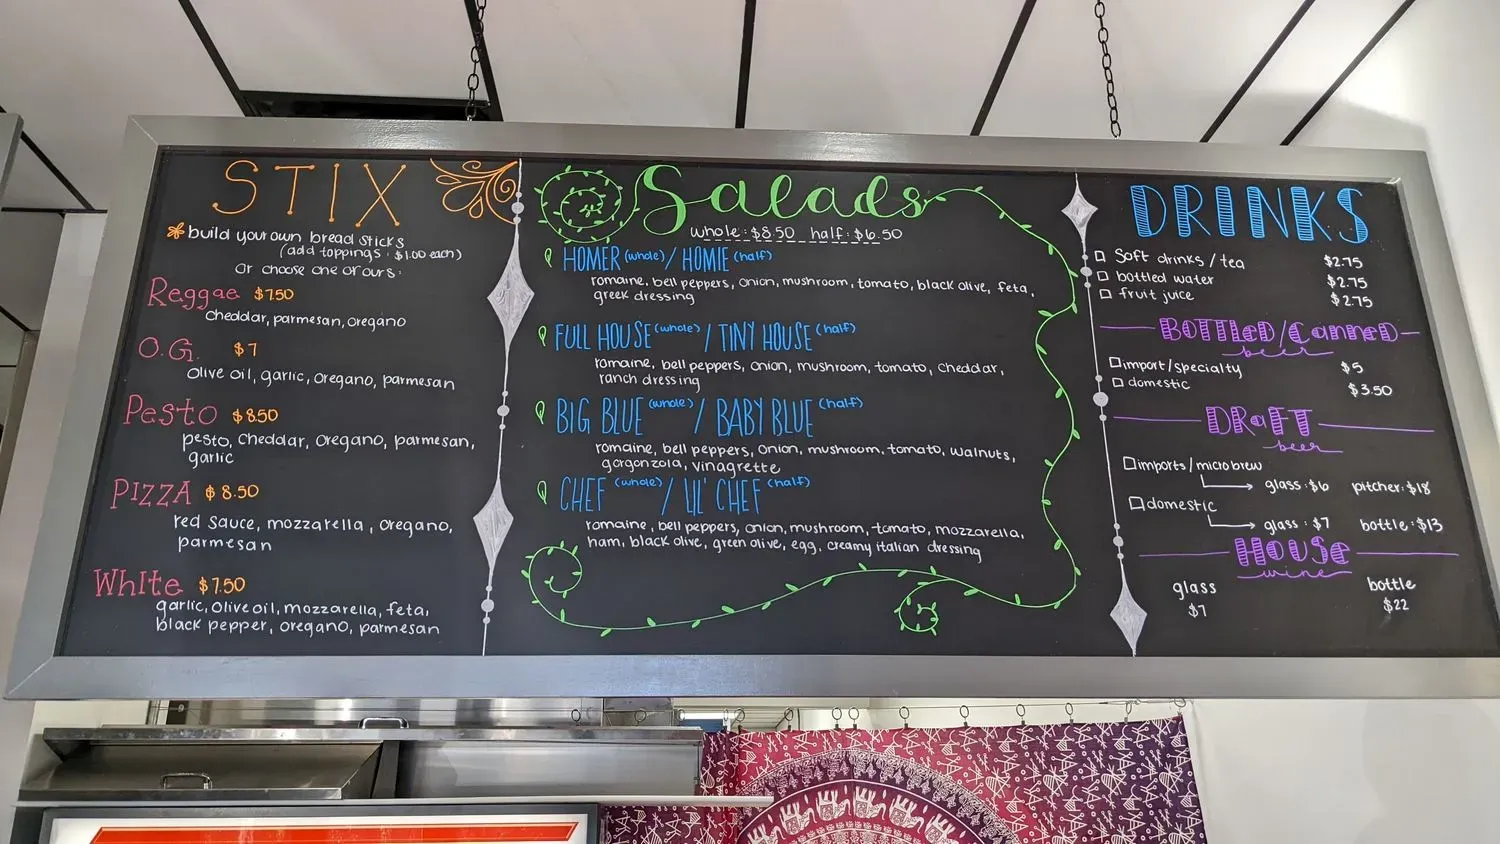 STIX
build your own bread sticks
(add toppings : $1.00 each)
Or choose one of ours:
Reggae $7.50
cheddar, parmesan, oregano
O.G. $7
Olive oil, garlic, oregano, parmesan
Pesto $8.50
pesto, cheddar, oregano, parmesan,
garlic
PIZZA $8.50
red sauce, mozzarella, oregano,
parmesan
White $7.50
garlic, olive oil, mozzarella, feta,
black pepper, oregano, parmesan
Salads
whole: $8.50 half: $6.50
HOMER (whole) / HOMIE (half)
romaine, bell peppers, onion, mushroom, tomato, black olive, feta,
greek dressing
FULL HOUSE (whole) / TINY HOUSE (half)
romaine, bell peppers, onion, mushroom, tomato, cheddar,
ranch dressing
BIG BLUE (whole) / BABY BLUE (half)
romaine, bell peppers, onion, mushroom, tomato, walnuts,
gorgonzola, vinagrette
CHEF (whole) / LIL' CHEF (half)
romaine, bell peppers, onion, mushroom, tomato, mozzarella,
ham, black olive, green olive, egg, creamy italian dressing
DRINKS
Soft drinks / tea $2.75
bottled water $2.75
fruit juice $2.75
BOTTLED/CANNED
beer
import/specialty $5
domestic $3.50
DRAFT
beer
imports/microbrew
glass: $6 pitcher: $18
domestic
glass: $7 bottle: $13
HOUSE
wine
glass bottle
$7 $22